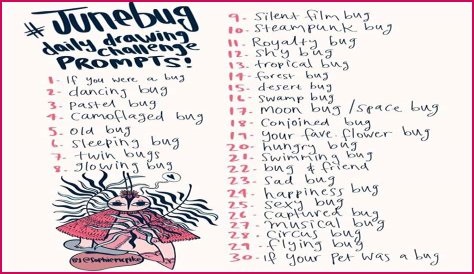 # JUNEBUG
daily drawing
challenge
PROMPTS!
1- If you were a bug
2- dancing bug
3- pastel bug
4- Camoflaged bug
5- old bug
6- sleeping bug
7- twin bugs
8- glowing bug
9- silent film bug
10- steampunk bug
11- Royalty bug
12- shy bug
13- tropical bug
14- forest bug
15- desert bug
16- swamp bug
17- Moon bug / space bug
18- Conjoined bug
19- your fave flower bug
20- hungry bug
21- Swimming bug
22- bug & friend
23- Sad bug
24- happiness bug
25- Sexy bug
26- Captured bug
27- musical bug
28- Circus bug
29- flying bug
30- if your Pet was a bug